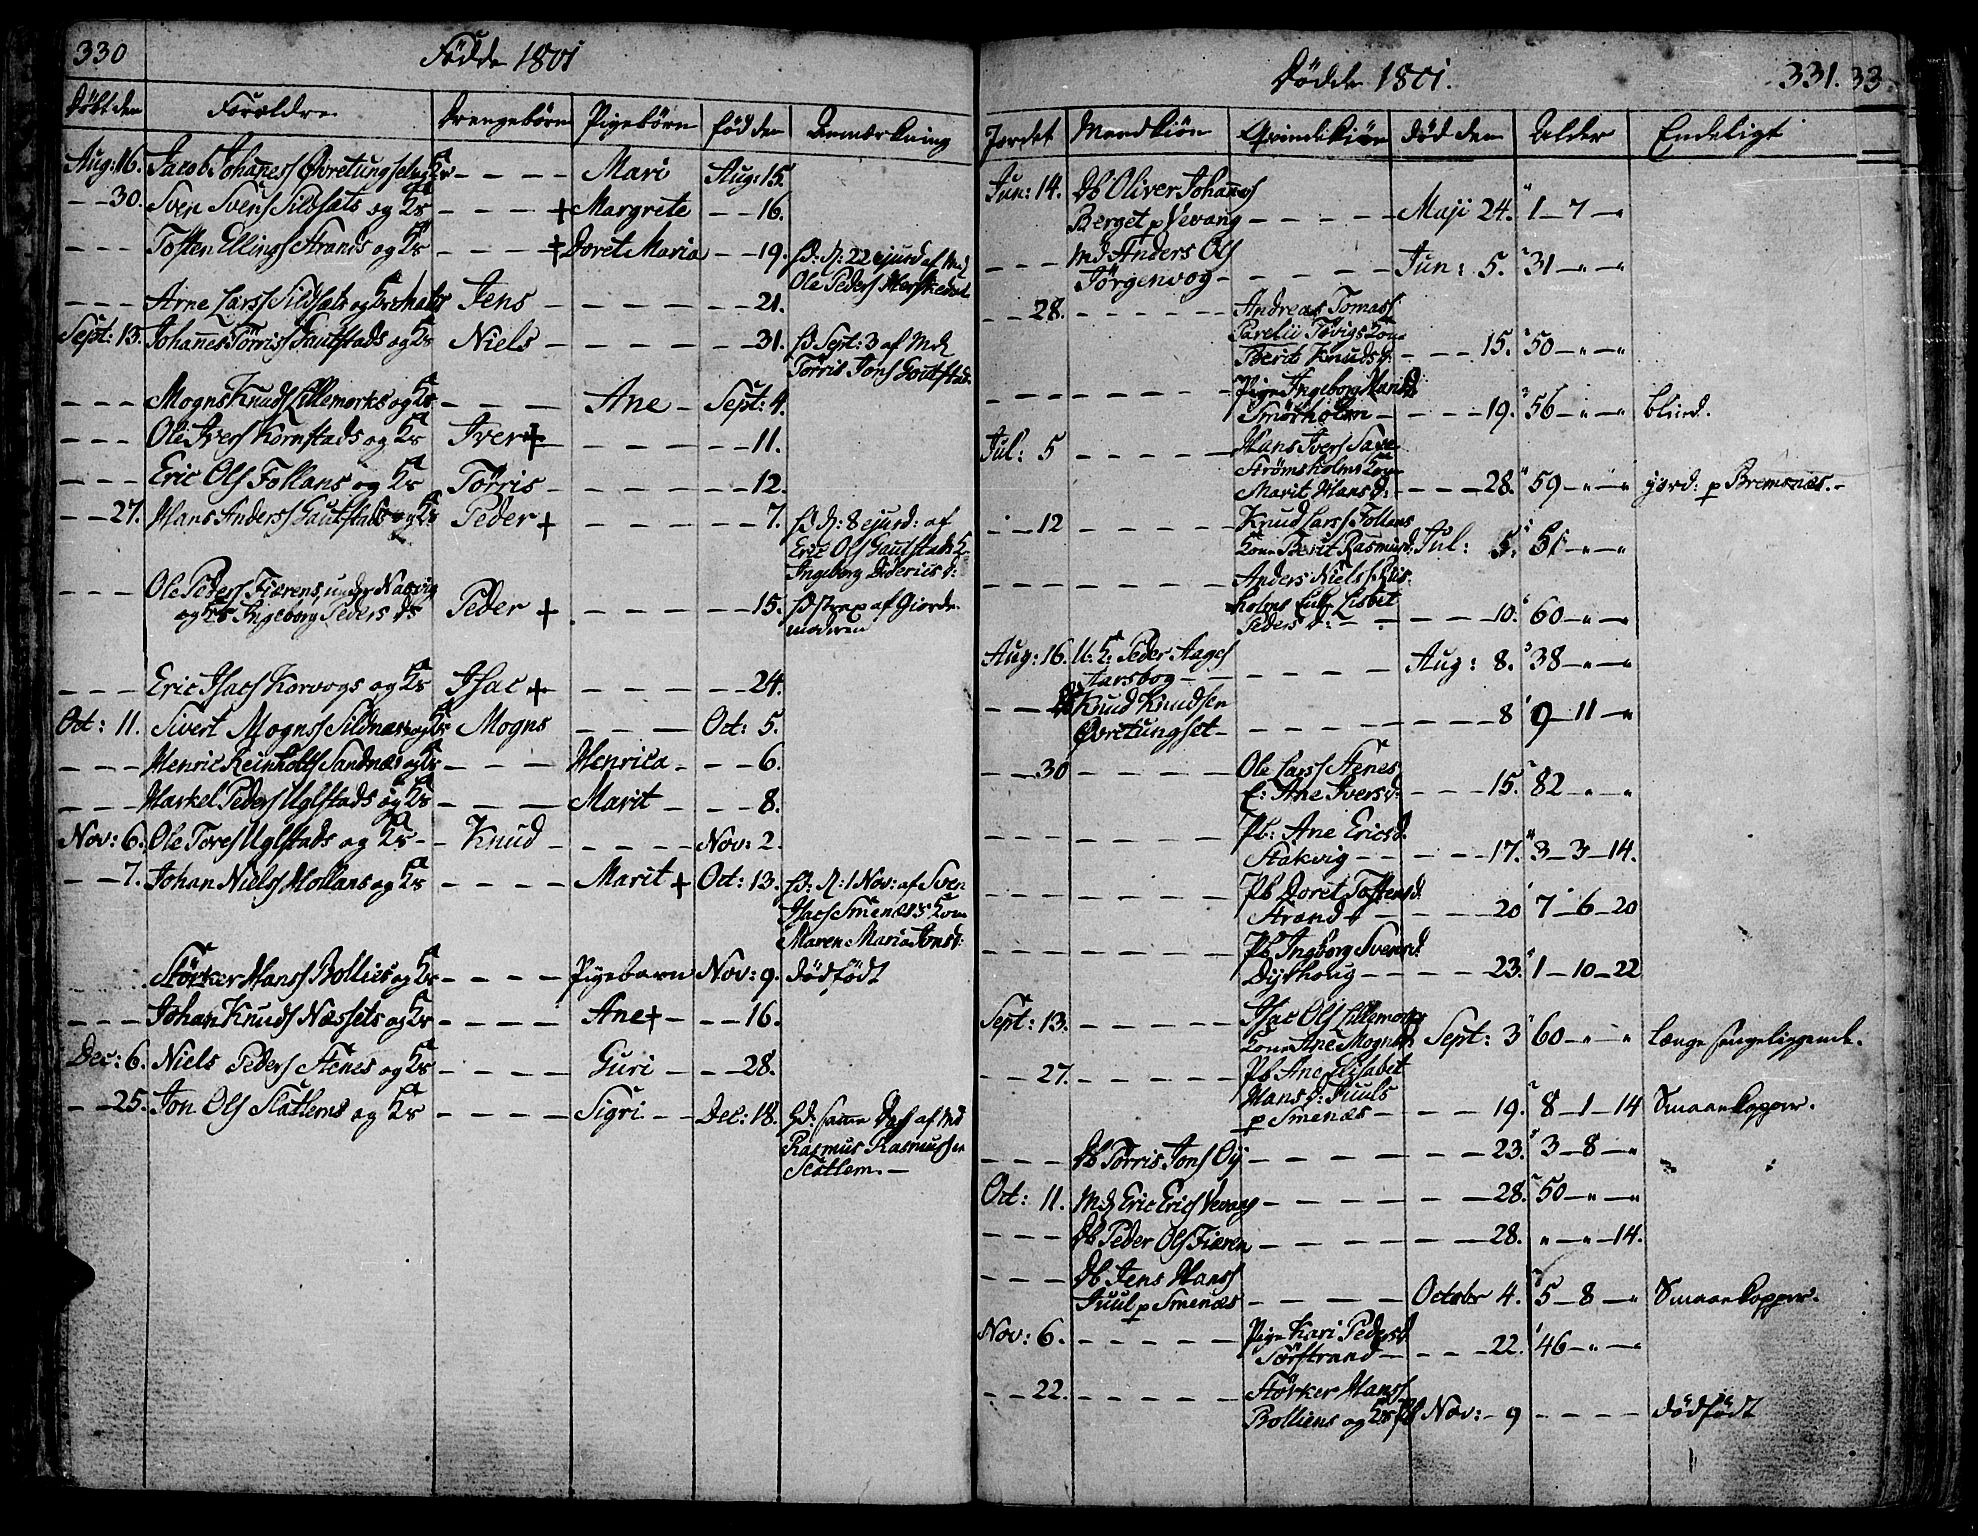 330
Födde 1801
Döbt den Forældre Drengebörn Pigebörn född den Anmærkning
Aug: 16. Jacob Johanes Övretungset og K - - - - Mari Aug: 15.
- - 30. Sven Svens Sildsets og K - - - + Margrete - - 16.
- - - Tosten Ellings Strands og K - - - + Doret Maria - - 19. H: d: 22 ejusd af Md
Ole Peders
- - - Arne Larss Sildsets og K Jens - - - - - - 21.
Sept: 13. Johanes Törriss Gautstads og K Niels - - - - - - 31. H Sept: 3 af Md
Törris Jons Gautstad
- - - Mogns Knuds Lillemorks og K - - - Ane - Sept: 4.
- - - Ole Ivers Kornstads og K Iver + - - - - - - 11.
- - - Eric Ols Follans og K Törris - - - - - - 12.
- - 27. Hans Anders Gautstads og K Peder + - - - - - - 7. H d: 8 ejusd: af
Eric Ols Gautstads K
Ingeborg Didericsd:
- - - Ole Peders Fiærens, under Nasvig
og K Ingeborg Pedersd Peder + - - - - - - 15. H strax af Giorde
moderen
- - - Eric Isacs Korvogs og K Isac + - - - - - - 24.
Oct: 11. Sivert Mogns Sildnæs og K Mogns - - - - Oct: 5.
- - - Henric Reinholts Sandnæs og K - - - Henrica - - - 6.
- - - Harkel Peders Uglstads og K - - - Marit - - - 8.
Nov: 6. Ole Tores Uglstads og K - - Knud - - - - - Nov: 2.
- - 7. Johan Niels Hollans og K - - - - Marit + Oct: 13. H: d: 1 Nov: af Sven
Isacs Smenæs's Kone
Maren Maria Jonsd:
Störker Hanss Bollies og K - - - - Pigebarn Nov: 9. dödfödt
- - - Johan Knuds Næssets og K - - - - Ane + - - - 16.
Dec: 6. Niels Peders Stenes og K - - - - Guri - - - 28.
- - 25. Jon Ols Slatlems og K - - - - Sigri - - Dec: 18. H: samme Dag af Md
Rasmus Rasmussen
Slatlem. -
Dödde 1801.
331. 33
Jordet Mandkiön Qvindekiön död den Alder Endeligt
Jun: 14. Db Oliver Johanes
Berget p Vevang - - - - - Maji 24. 1 - 7 - "
- - - Md Anders Ols
Jörgenvog - - - - - Jun: 5. 31 - " - "
- - 28. - - - - - Andreas Tomass
Tövigs Kone
Berit Knudsd: - - - 15. 50 - " - "
- - - - - - - - Pige Ingeborg Harisd
Smörholm - - - - 19. 56 - " - " blind.
Jul: 5 - - - - - Hans Ivers
Strömsholms Kone
Marit Hansd: - - - 28. 59 - " - " jord: p Bremsnæs. -
- - 12 - - - - - Knud Larss Follans
Kone Berit Rasmusd: Jul: 5. 51 - " - "
- - - - - - - - Anders Niels
holms Enke Lisbet
Pedersd: - - - 10. 60 - " - "
Aug: 16. U: K: Peder Aages
Aarsbog - - - - - - Aug: 8. 38 - " - "
- - - Db Knud Knudsen
Övretungset - - - - - 8 9 - 11 - "
- - 30 - - - - - Ole Larss Stenes
E: Ane Iversd: - - - 15. 82 - " - "
- - - - - - - - Pb: Ane Ericsd.
Stakvig - - - - - 17. 3 - 3 - 14.
- - - - - - - - Pb Doret Tostensd:
Strand - - - - 20 7 - 6 - 20
- - - - - - - - Pb Ingborg Svensd:
Dyrhoug - - - - 23. 1 - 10 - 22
Sept: 13. - - - - - Isac Ols Lillemorks
Kone Ane Mognsd Sept: 3 60 - " - " længe sengeliggende.
- - 27. - - - - - Pb Ane Elisabet
Hansd: Juuls
p Smenæs - - - - 19. 8 - 1 - 14 Smaaekopper.
- - - Db Törris Jons Öÿ - - - - - - 23. 3 - 8 - "
Oct: 11. Md Eric Erics Vevang - - - - - - 28. 50 - " - "
- - - Db Peder Ols Fiæren - - - - - - 28. " - " - 14.
- - - Db Jens Hanss
Juul p Smenæs - - - - Octobr 4. 5 - 8 - " Smaaekopper.
Nov: 6. - - - - - Pige Kari Pedersd:
Törstrand - - - - 22. 46 - " - "
- - 22. - - - - - Störker Hanss
Bolliens og K Pb Nov: - 9 - - - - dödfödt